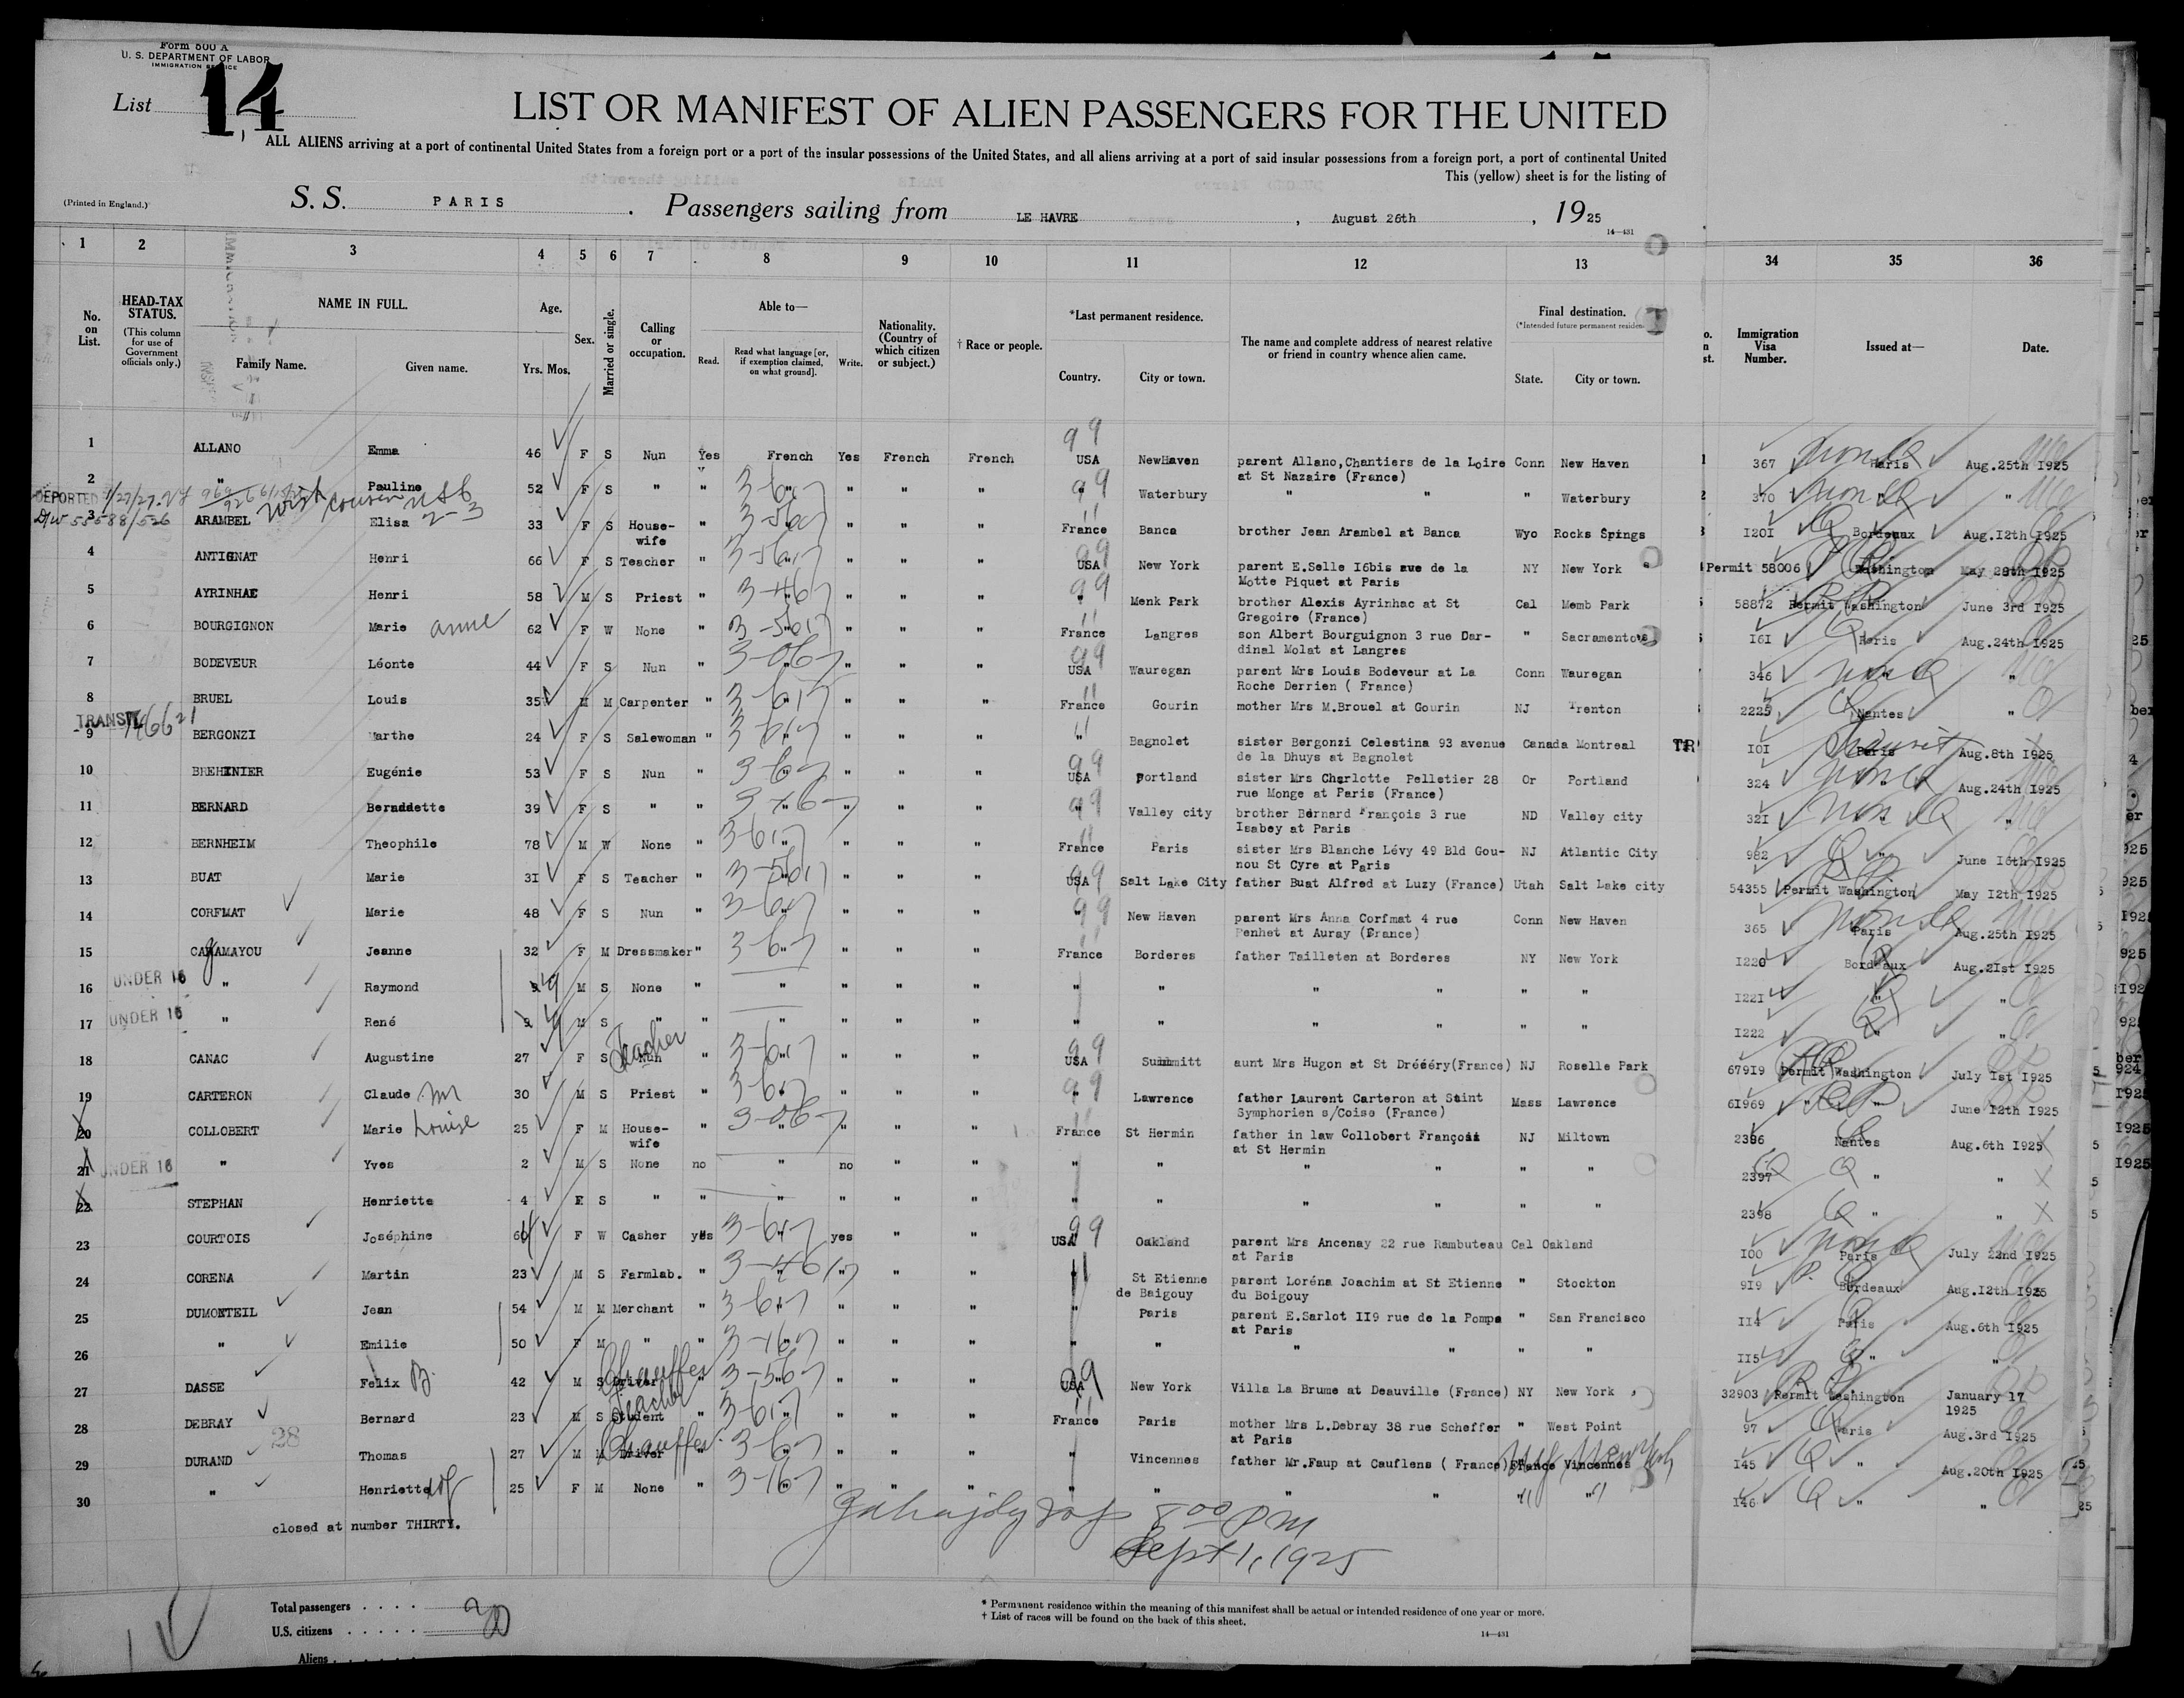 Form 500 A
U. S. DEPARTMENT OF LABOR
IMMIGRATION SERVICE
List 14
LIST OR MANIFEST OF ALIEN PASSENGERS FOR THE UNITED
ALL ALIENS arriving at a port of continental United States from a foreign port or a port of the insular possessions of the United States, and all aliens arriving at a port of said insular possessions from a foreign port, a port of continental United
This (yellow) sheet is for the listing of
(Printed in England.) S. S. PARIS . Passengers sailing from LE HAVRE , August 26th , 1925
14—431
1 2 3 4 5 6 7 8 9 10 11 12 13 34 35 36
No. on List. HEAD-TAX STATUS. (This column for use of Government officials only.) NAME IN FULL. Family Name. Given name. Age. Yrs. Mos. Sex. Married or single. Calling or occupation. Able to— Read. Read what language [or, if exemption claimed, on what ground]. Write. Nationality. (Country of which citizen or subject.) † Race or people. *Last permanent residence. Country. City or town. The name and complete address of nearest relative or friend in country whence alien came. Final destination. (*Intended future permanent residence) State. City or town. Immigration Visa Number. Issued at— Date.
1 ALLANO Emma 46 F S Nun Yes French Yes French French USA NewHaven parent Allano,Chantiers de la Loire at St Nazaire (France) Conn New Haven 367 Paris Aug.25th I925
2 " Pauline 52 F S " " " " " " " Waterbury " " " Waterbury 370 " "
DEPORTED 1/27/27
3 ARAMBEL Elisa 33 F S House-wife " " " " " France Banca brother Jean Arambel at Banca Wyo Rocks Springs I20I Bordeaux Aug.I2th I925
4 ANTIGNAT Henri 66 F S Teacher " " " " " USA New York parent E.Selle I6bis ave de la Motte Piquet at Paris NY New York Permit 58006 Washington May 28th I925
5 AYRINHAC Henri 58 M S Priest " " " " " " Menk Park brother Alexis Ayrinhac at St Gregoire (France) Cal Memb Park 58872 Permit Washington June 3rd I925
6 BOURGIGNON Marie anne 62 F W None " " " " " France Langres son Albert Bourguignon 3 rue Dar-dinal Molat at Langres " Sacramento I6I Paris Aug.24th I925
7 BODEVEUR Léonte 44 F S Nun " " " " " USA Wauregan parent Mrs Louis Bodeveur at La Roche Derrien ( France) Conn Wauregan 346 " "
8 BRUEL Louis 35 M M Carpenter " " " " " France Gourin mother Mrs M.Brouel at Gourin NJ Trenton 2225 Nantes "
TRANSIT
9 BERGONZI Marthe 24 F S Salewoman " " " " " " Bagnolet sister Bergonzi Celestina 93 avenue de la Dhuys at Bagnolet Canada Montreal I0I Paris Aug.8th I925
10 BREHINIER Eugénie 53 F S Nun " " " " " USA Portland sister Mrs Charlotte Pelletier 28 rue Monge at Paris (France) Or Portland 324 " Aug.24th I925
11 BERNARD Bernadette 39 F S " " " " " " " Valley city brother Bernard François 3 rue Isabey at Paris ND Valley city 32I " "
12 BERNHEIM Theophile 78 M W None " " " " " France Paris sister Mrs Blanche Lévy 49 Bld Gou-nou St Cyre at Paris NJ Atlantic City 982 " June I6th I925
13 BUAT Marie 3I F S Teacher " " " " " USA Salt Lake City father Buat Alfred at Luzy (France) Utah Salt Lake city 54355 Permit Washington May I2th I925
14 CORFMAT Marie 48 F S Nun " " " " " " New Haven parent Mrs Anna Corfmat 4 rue Penhet at Auray (France) Conn New Haven 365 Paris Aug.25th I925
15 CAGAMAYOU Jeanne 32 F M Dressmaker " " " " " France Borderes father Tailleten at Borderes NY New York I220 Bordeaux Aug.2Ist I925
16 UNDER 16 " Raymond 9 M S None " " " " " " " " " " " I22I " "
17 UNDER 16 " René 4 M S " " " " " " " " " " " " I222 " "
18 CANAC Augustine 27 F S Nun Teacher " " " " " USA Summitt aunt Mrs Hugon at St Dréééry(France) NJ Roselle Park 679I9 Permit Washington July Ist I925
19 CARTERON Claude M 30 M S Priest " " " " " " Lawrence father Laurent Carteron at Saint Symphorien s/Coise (France) Mass Lawrence 6I969 " " June I2th I925
20 COLLOBERT Marie Louise 25 F M House-wife " " " " " France St Hermin father in law Collobert François at St Hermin NJ Miltown 2396 Nantes Aug.6th I925
21 UNDER 16 " Yves 2 M S None no " no " " " " " " " " 2397 " "
22 STEPHAN Henriette 4 F S " " " " " " " " " " " " 2398 " "
23 COURTOIS Joséphine 64 F W Casher yes " yes " " USA Oakland parent Mrs Ancenay 22 rue Rambuteau at Paris Cal Oakland I00 Paris July 22nd I925
24 CORENA Martin 23 M S Farmlab. " " " " " St Etienne de Baigouy parent Loréna Joachim at St Etienne du Boigouy " Stockton 9I9 Bordeaux Aug.I2th I925
25 DUMONTEIL Jean 54 M M Merchant " " " " " " Paris parent E.Sarlot II9 rue de la Pompe at Paris " San Francisco II4 Paris Aug.6th I925
26 " Emilie 50 F M " " " " " " " " " " " " II5 " "
27 DASSE Felix B. 42 M S Driver Chauffer " " " " " USA New York Villa La Brume at Deauville (France) NY New York 32903 Permit Washington January I7 I925
28 DEBRAY Bernard 23 M S Student Teacher " " " " " France Paris mother Mrs L.Debray 38 rue Scheffer at Paris " West Point 97 Paris Aug.3rd I925
28
29 DURAND Thomas 27 M M Driver Chauffer " " " " " " Vincennes father Mr.Faup at Cauflens ( France) France Vincennes New York I45 " Aug.20th I925
30 " Henriette wf 25 F M None " " " " " " " " " " " I46 " "
closed at number THIRTY.
8 00 PM
Sept 1, 1925
Total passengers . . . . 30
U.S. citizens . . . . .
Aliens . . . . . .
* Permanent residence within the meaning of this manifest shall be actual or intended residence of one year or more.
† List of races will be found on the back of this sheet.
14—431